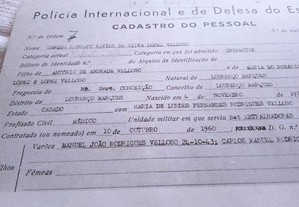 Polícia Internacional e de Defesa do Es
CADASTRO DO PESSOAL
N.º de Ordem
Nome CARLOS RODOLFO XAVIER DA SILVA LOPEZ VELLOSO
Categoria actual Categoria em que foi admitido INSPECTOR
N.º de identificação N.º do Arquivo de Identificação e
Filho de ANTÓNIO DE ANDRADE VELLOSO e de MARIA DO ROSÁRIO
LOPEZ E LOPEZ VELLOSO Natural de LOURENÇO MARQUES
Freguesia de Na. Senr. CONCEIÇÃO Concelho de LOURENÇO MARQUES
Distrito de LOURENÇO MARQUES Nascido em 4 de NOVEMBRO de
Estado CASADO com MARIA DE LURDES FERNANDES RODRIGUES VELLOSO
Profissão Civil MÚSICO Unidade militar em que serviu Bat METRALHADORAS
Contratado (ou nomeado) em 10 de OUTUBRO de 1960 D. G. n.º
Varões MANUEL JOÃO RODRIGUES VELLOSO 24-10-43; CARLOS MANUEL RODRIG
lhos
Fêmeas